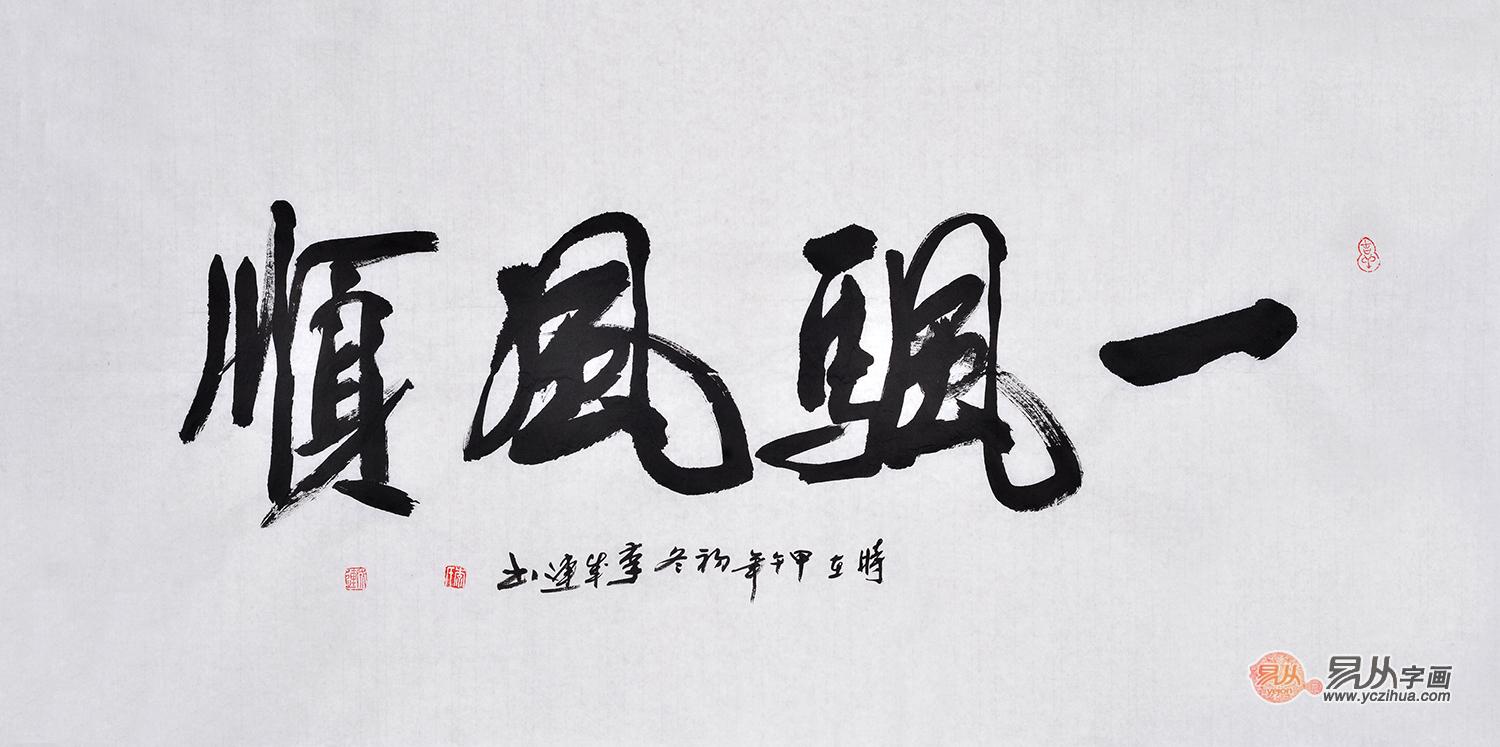 一颿風順
時在甲午年初冬李成連書
易从字画
yejon
www.yczihua.com